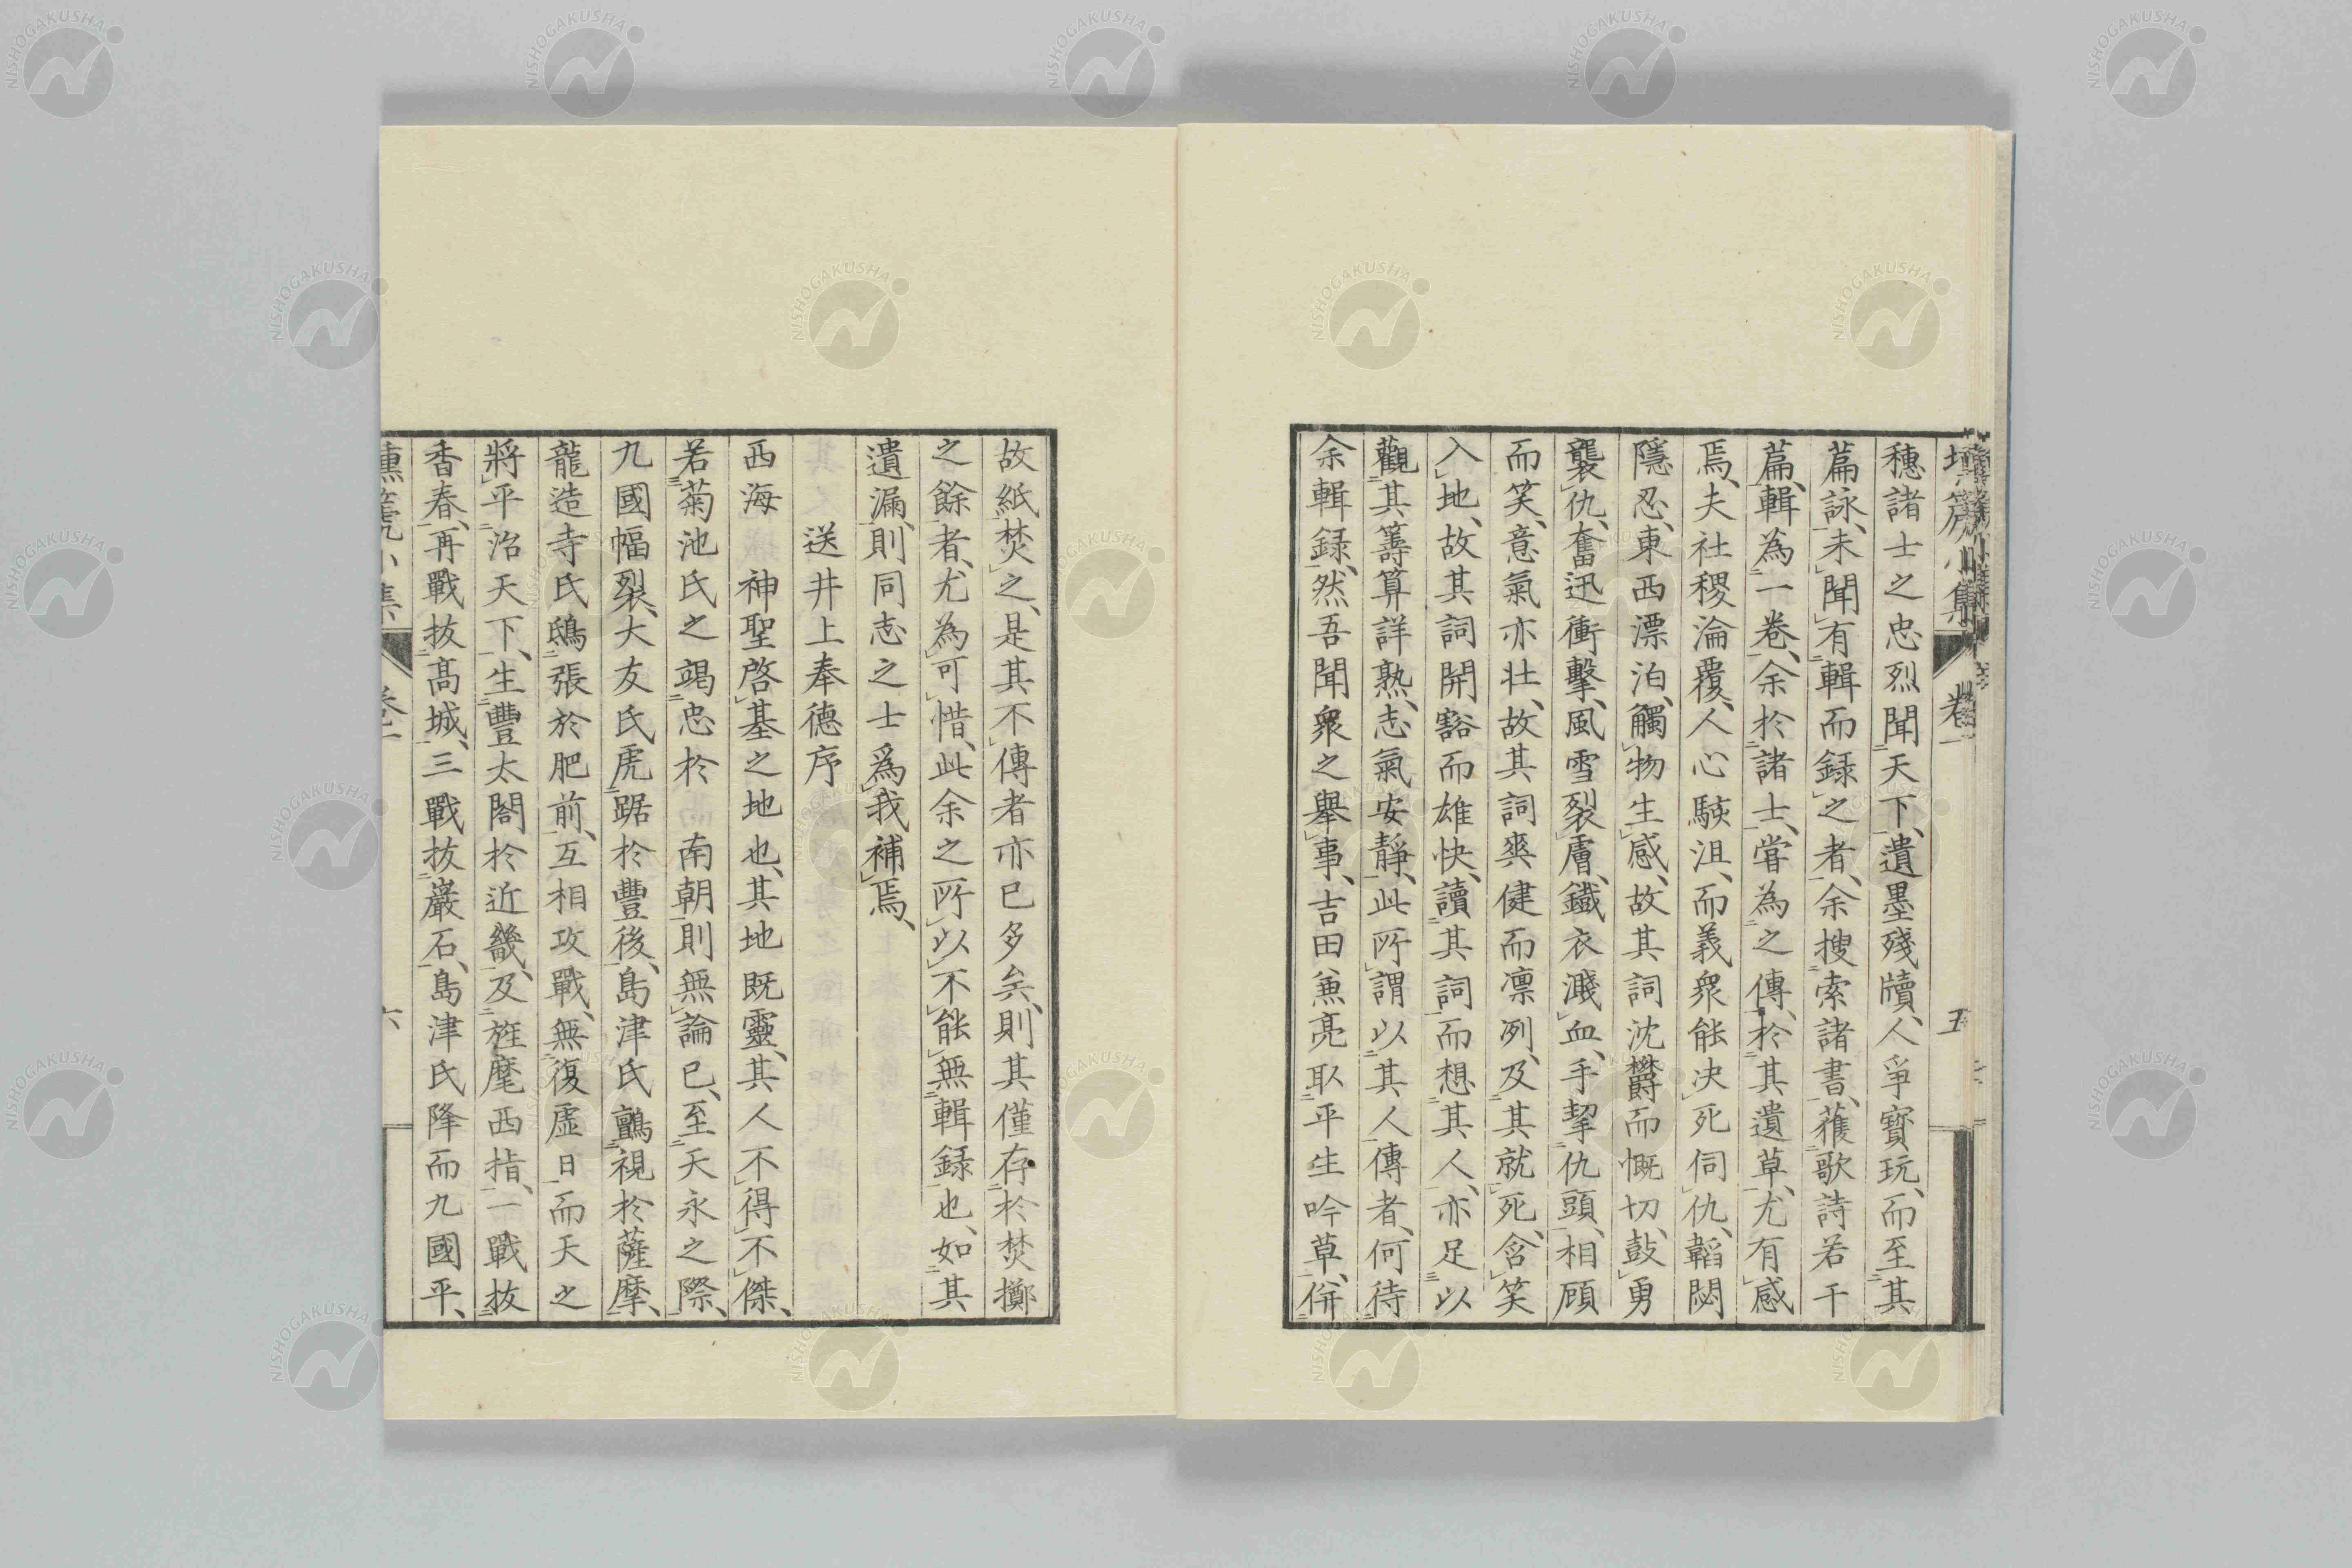 壎篪小集 卷一 五
穗諸士之忠烈聞天下、遺墨殘牘、人爭寶玩、而至其
篇詠、未聞有輯而録之者、余搜索諸書、獲歌詩若干
篇、輯為一卷、余於諸士、嘗為之傳、於其遺草、尤有感
焉、夫社稷淪覆、人心駭沮、而義衆能决死伺仇、韜閟
隱忍、東西漂泊、觸物生感、故其詞沈欝而慨切、鼓勇
襲仇、奮迅衝擊、風雪裂膚、鐵衣濺血、手挈仇頭、相顧
而笑、意氣亦壮、故其詞爽健而凛冽、及其就死、含笑
入地、故其詞開豁而雄快、讀其詞而想其人、亦足以
觀其籌算詳熟、志氣安靜、此所謂以其人傳者、何待
余輯録、然吾聞衆之舉事、吉田兼亮取平生吟草、併
故紙焚之、是其不傳者亦已多矣、則其僅存於焚擲
之餘者、尤為可惜、此余之所以不能無輯録也、如其
遺漏、則同志之士為我補焉、
送井上奉德序
西海 神聖啓基之地也、其地既靈、其人不得不傑、
若菊池氏之竭忠於 南朝則無論已、至天永之際、
九國幅裂、大友氏虎踞於豐後、島津氏鸇視於薩摩、
龍造寺氏鴟張於肥前、互相攻戰、無復虛日、而天之
將平治天下、生豐太閤於近畿、及旌麾西指、一戰拔
香春、再戰拔髙城、三戰拔巖石、島津氏降而九國平、
壎篪小集 卷一 六
NISHOGAKUSHA